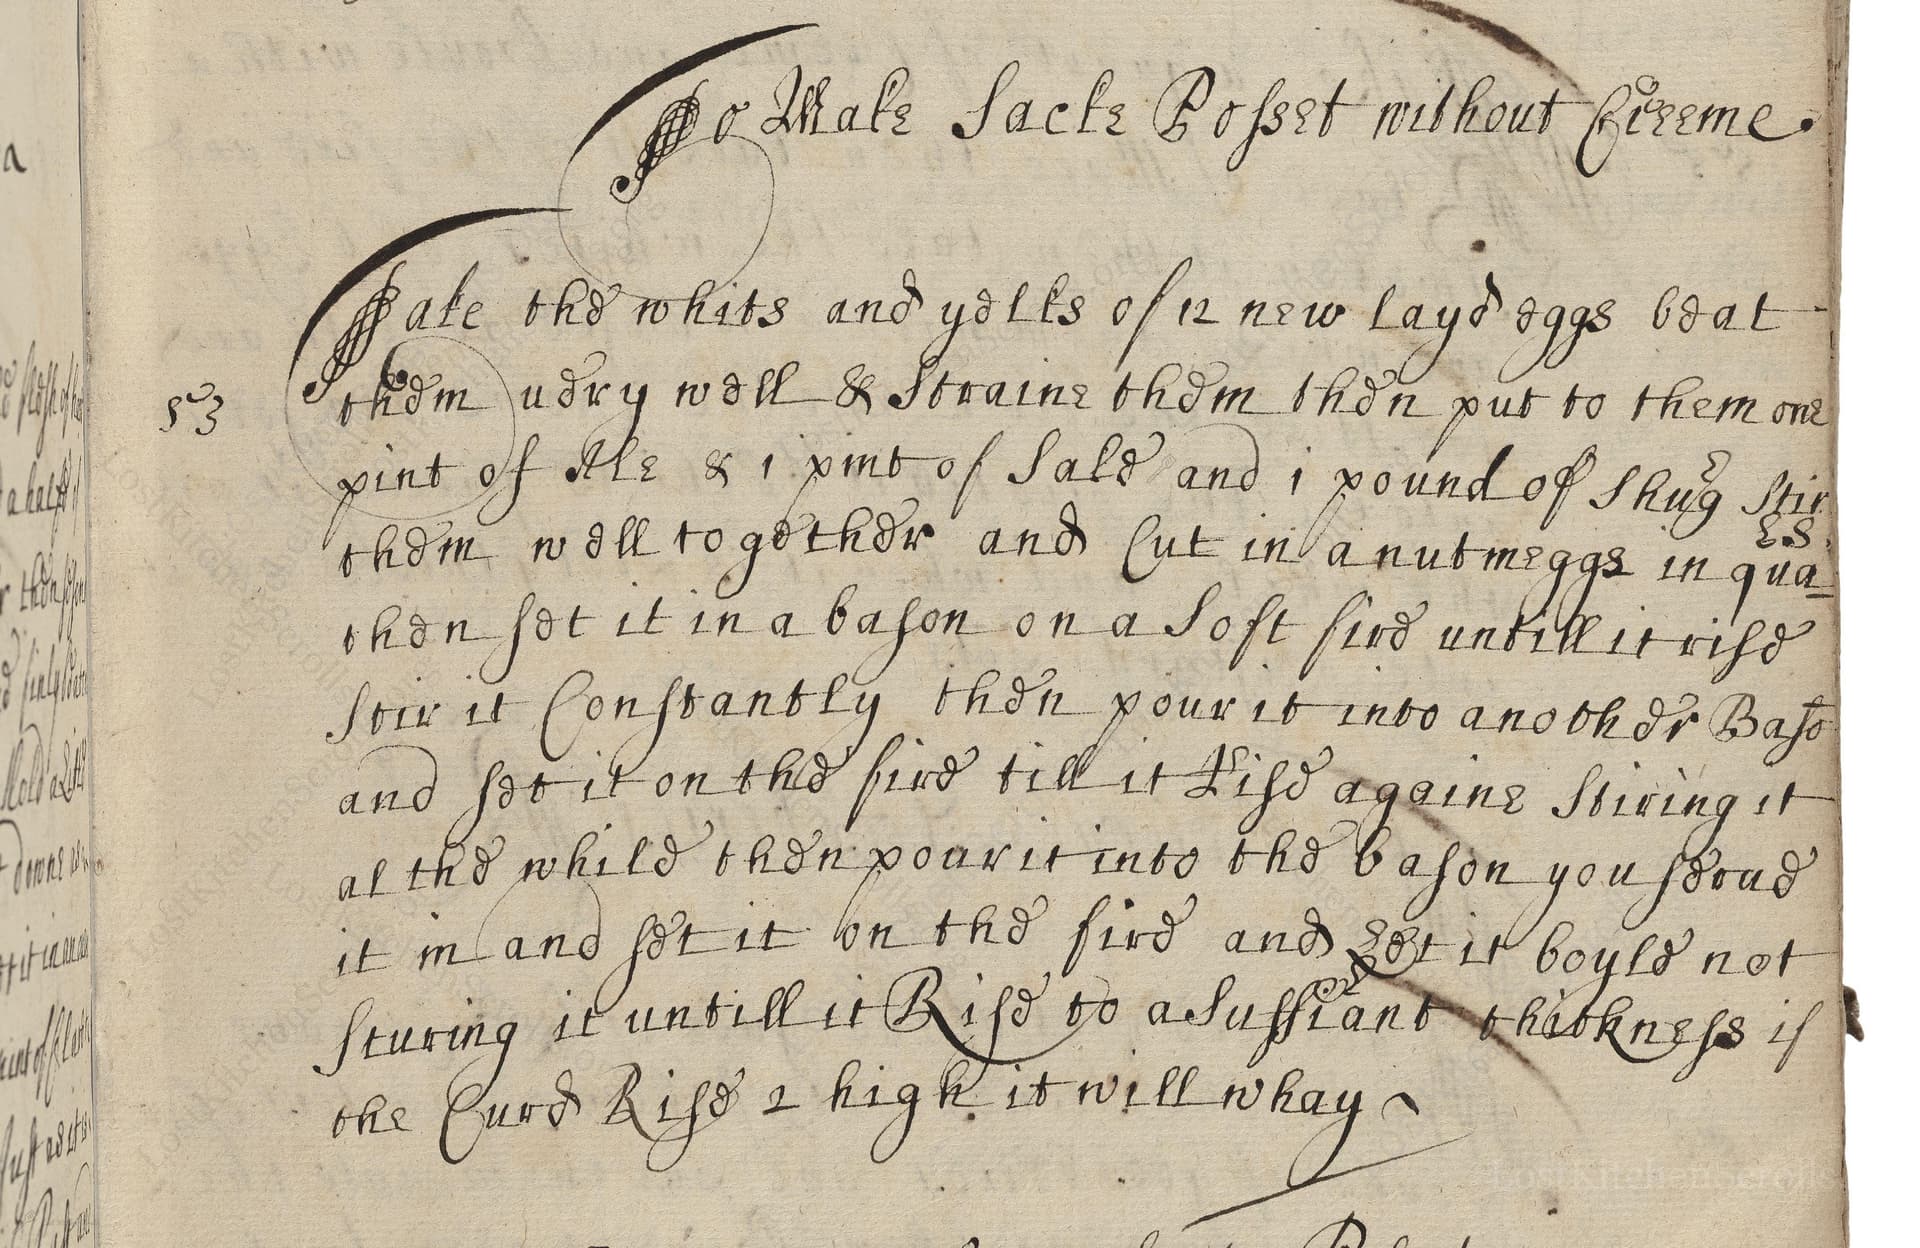 To Make Sacke Posset without Creeme.
Take the whits and yelks of 12 new layd eggs beat
53
them uery well & Straine them then put to them one
pint of Ale & 1 pint of Sake and 1 pound of Shug Stir
them well together and Cut in a nutmeggs in qua
es
then set it in a bason on a Soft fire untill it rise
Stir it Constantly then pour it into another Baso
and set it on the fire till it Rise againe Stiring it
al the while then pour it into the bason you serue
it in and set it on the fire and Let it boyle not
Sturing it untill it Rise to a Suffiant thickness if
the Curd Rise 2 high it will whay